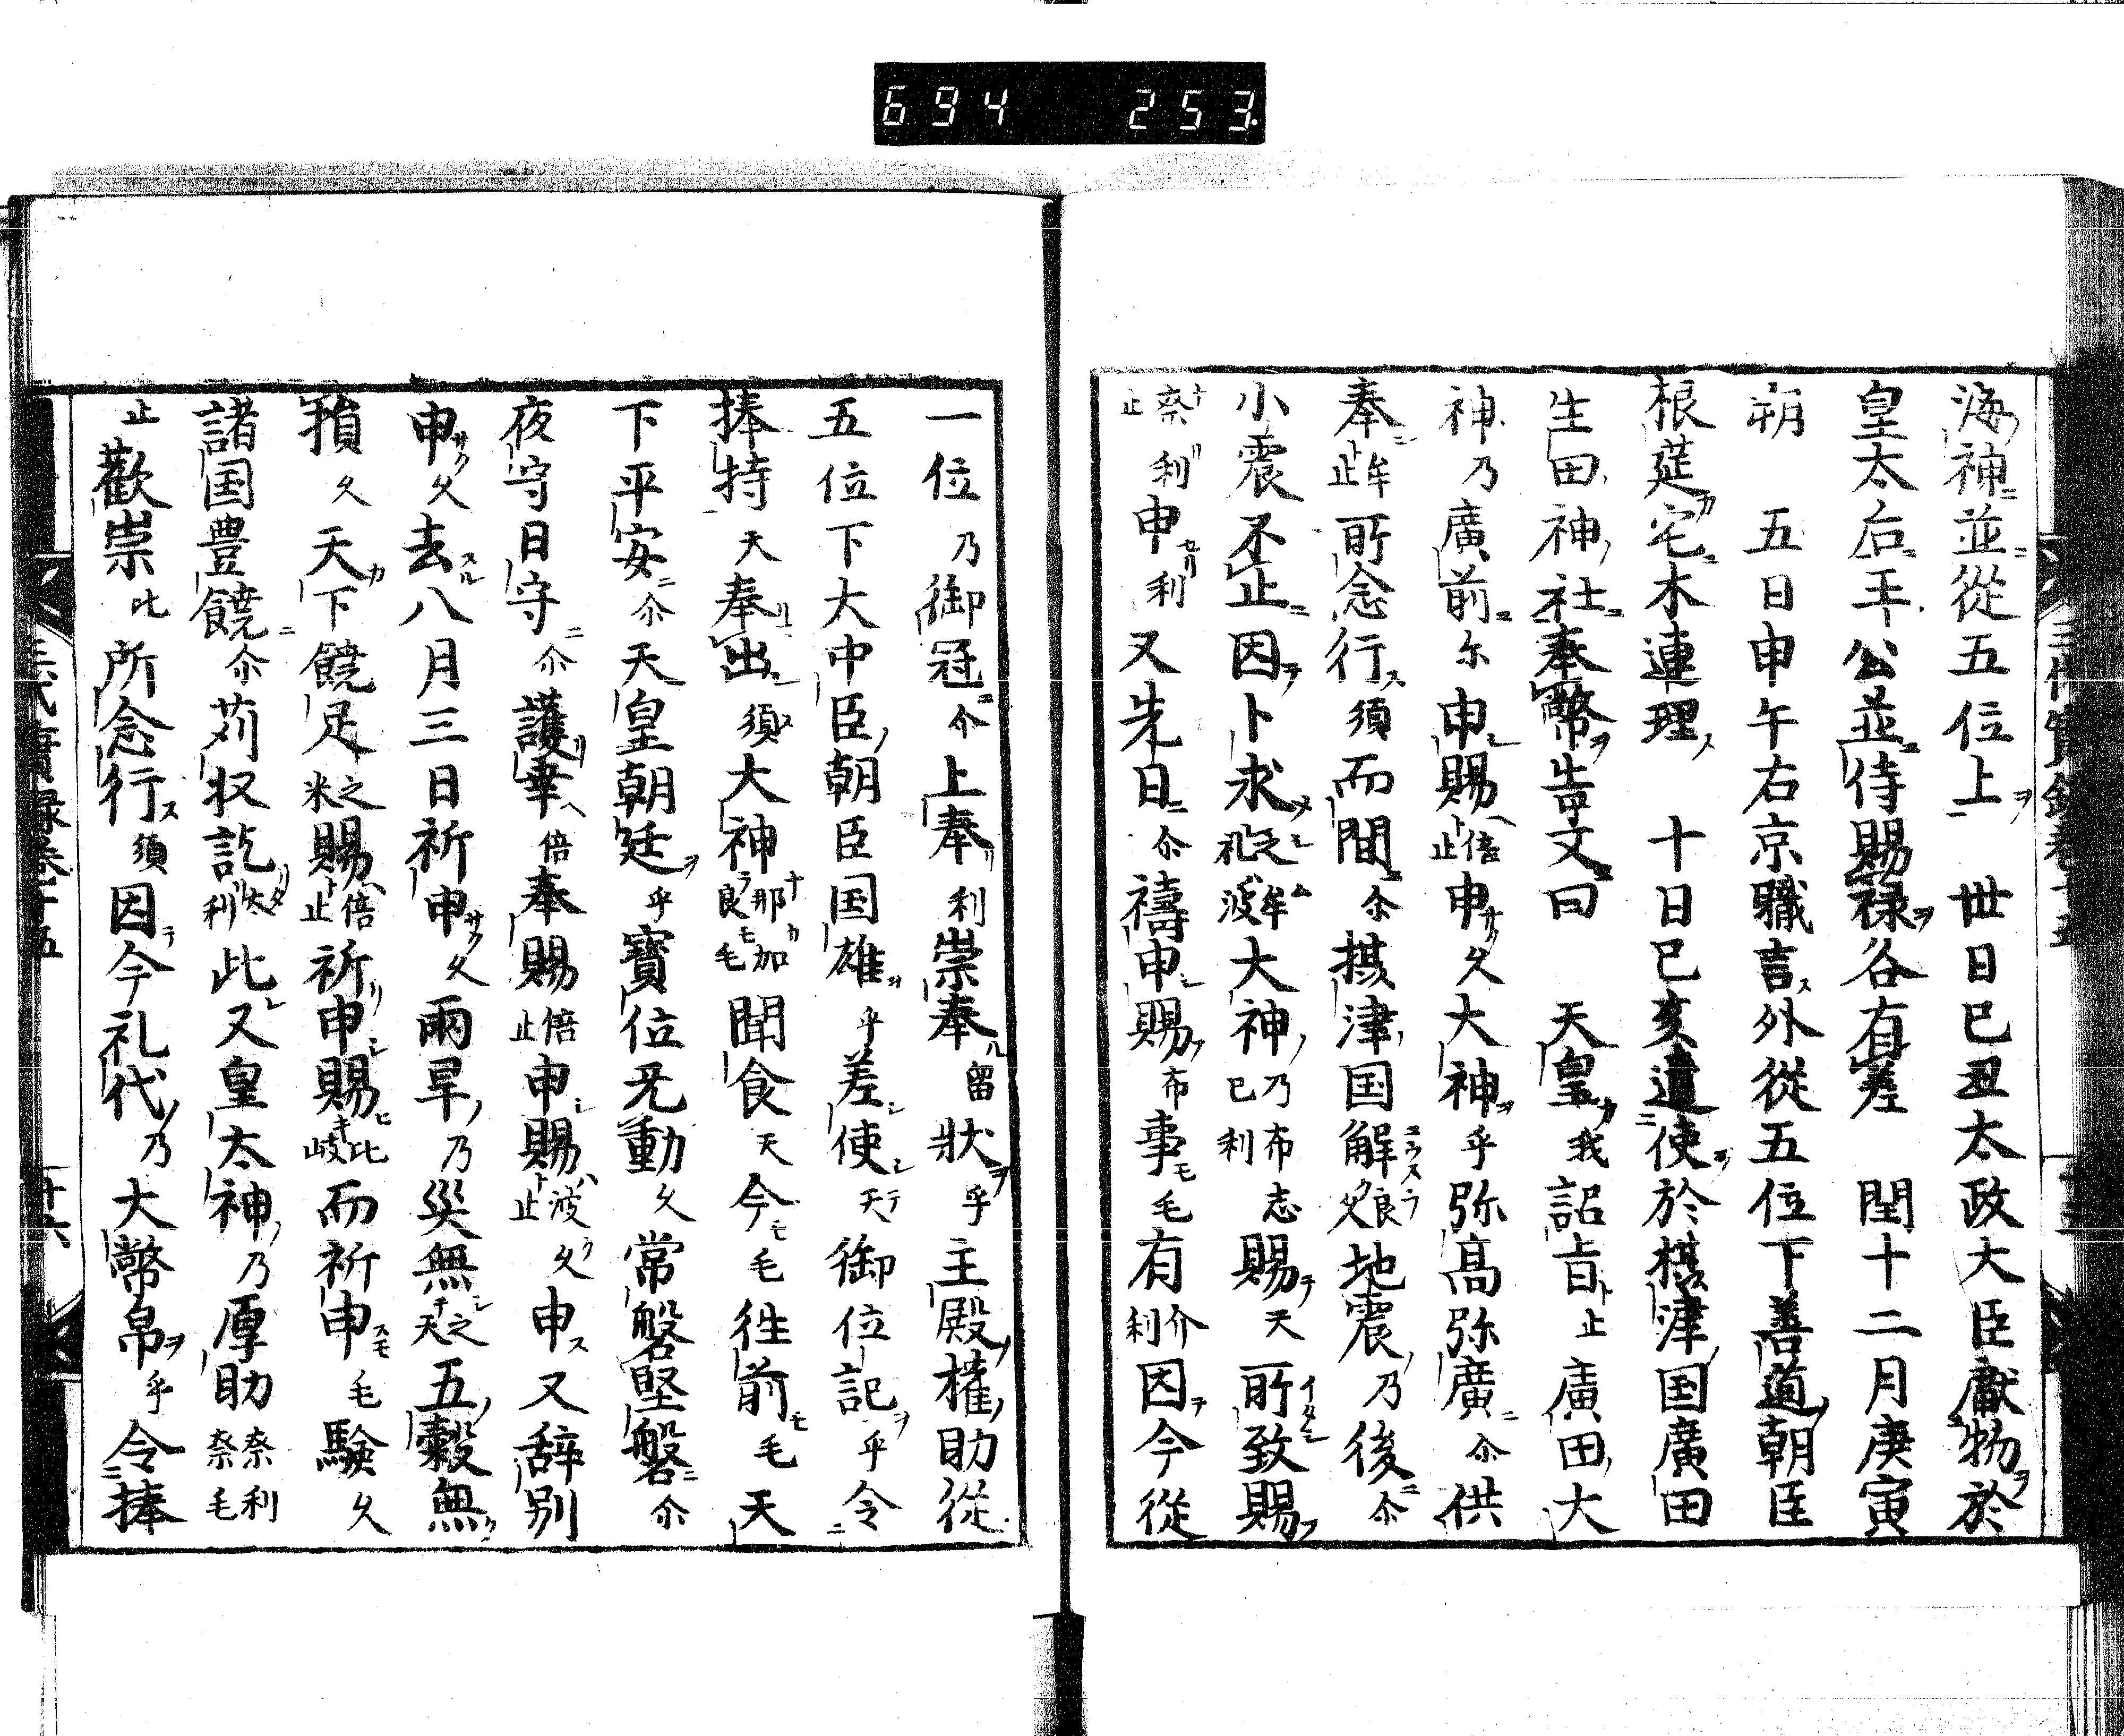 694 253
海神並從五位上 丗日巳丑太政大臣獻物於
皇太后王公並侍賜禄各有差 閏十二月庚寅
朔 五日申午右京職言外從五位下善道朝臣
根莚宅木連理 十日巳亥遣使於摂津国廣田
生田神社奉幣告文曰 天皇我詔旨止廣田大
神乃廣前尓申賜倍止申久大神乎弥高弥廣尓供
奉牟止所念行須而間尓摂津国解良久地震乃後尓
小震不止因卜求之牟礼波大神乃布志己利賜天所致賜
奈利止申利又先日尓禱申賜布事毛有介利因今從
一位乃御冠尓上奉利崇奉留狀乎主殿権助從
五位下大中臣朝臣国雄乎差使天御位記乎令
捧持天奉出須大神那加良毛聞食天今毛徃前毛天
下平安尓天皇朝廷乎寳位无動久常磐堅磐尓
夜守日守尓護幸倍奉賜倍止申賜波久止申又辞別
申久去八月三日祈申久雨旱乃災無之天五穀無
損久天下饒足之米賜倍止祈申賜比岐而祈申毛験久
諸国豊饒尓苅収訖太利此又皇太神乃厚助奈利奈毛
止歡崇比所念行須因今礼代乃大幣帛乎令捧
三代實録卷十五 廿六